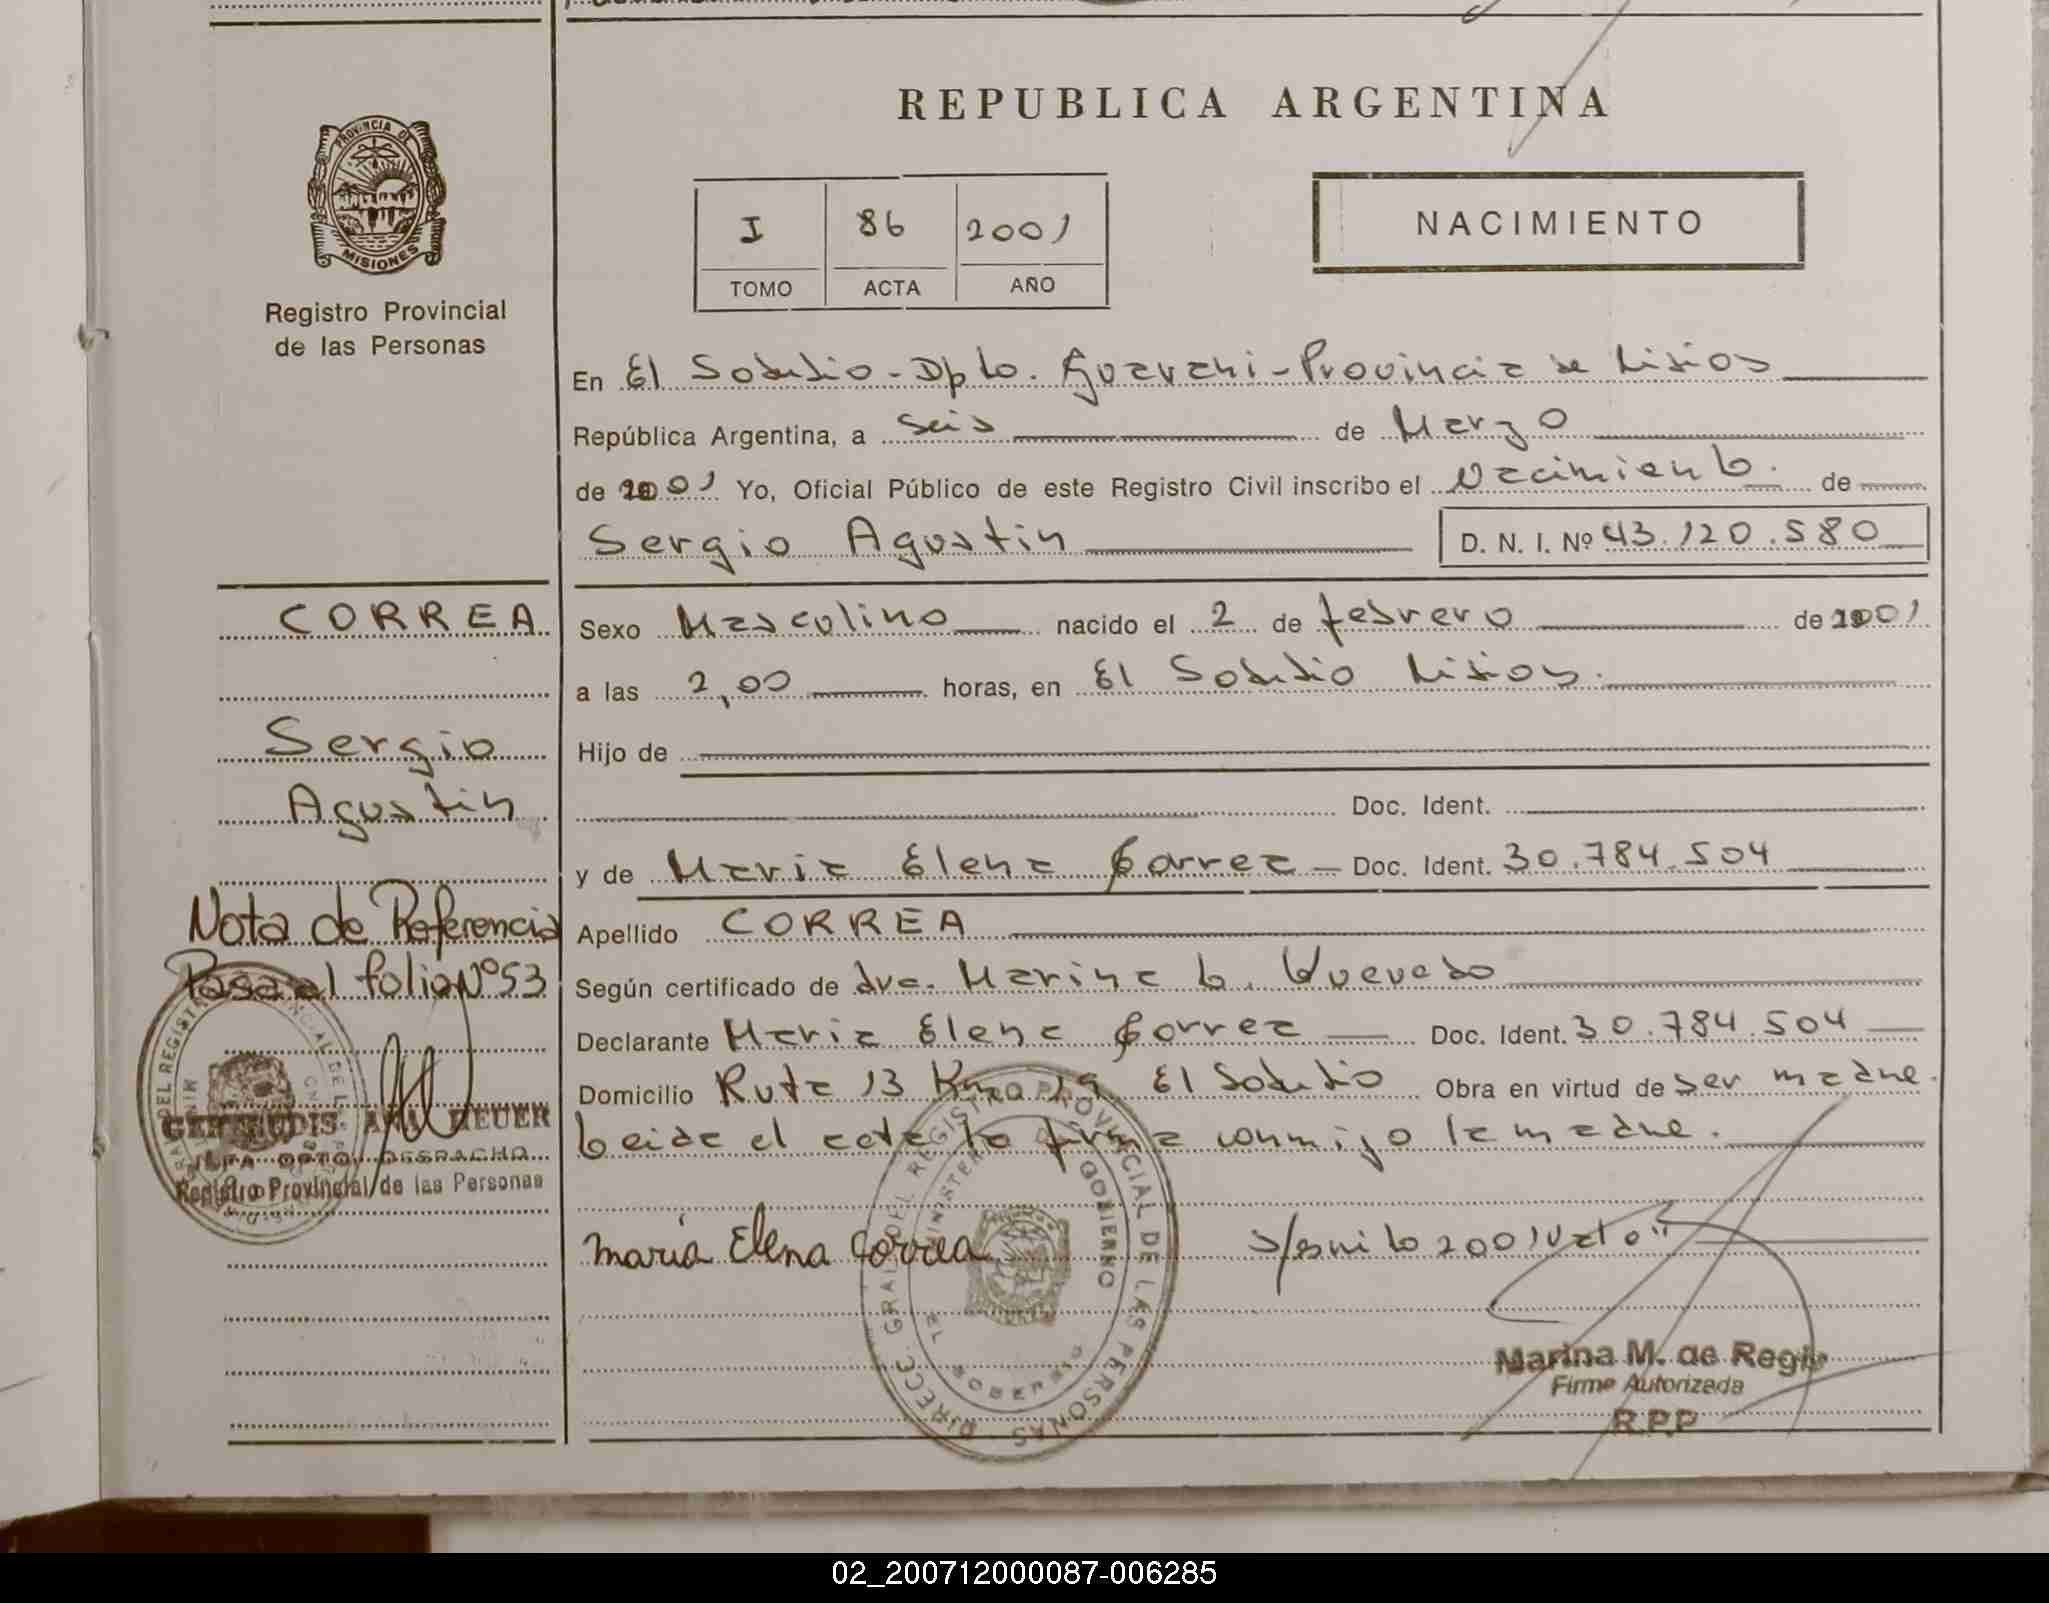 REPUBLICA ARGENTINA
PROVINCIA DE
MISIONES
Registro Provincial
de las Personas
I 86 2001
TOMO ACTA AÑO
NACIMIENTO
En El Soberbio - Dpto. Guarani - Provincia de Misiones
República Argentina, a seis de Marzo
de 2001 Yo, Oficial Público de este Registro Civil inscribo el Nacimiento. de
Sergio Agustin D. N. I. Nº 43.120.580
CORREA
Sergio
Agustin
Sexo Masculino nacido el 2 de febrero de 2001
a las 2,00 horas, en El Soberbio Misiones.
Hijo de
Doc. Ident.
y de Maria Elena Correa Doc. Ident. 30.784.504
Apellido CORREA
Según certificado de dra. Marina Quevedo
Declarante Maria Elena Correa Doc. Ident. 30.784.504
Domicilio Ruta 13 Km 19 El Soberbio Obra en virtud de ser madre.
Leida el acta la firma conmigo la madre.
Nota de Referencia
Pasa al folio Nº 53
GERTRUDIS ANA HEUER
JEFA DPTO. DESPACHO
Registro Provincial de las Personas
maría Elena Correa
DIRECC. GRAL. DEL REGISTRO PROVINCIAL DE LAS PERSONAS
MINISTERIO GOBIERNO
EL SOBERBIO
Marina M. de Regis
Firma Autorizada
R.P.P
02_200712000087-006285